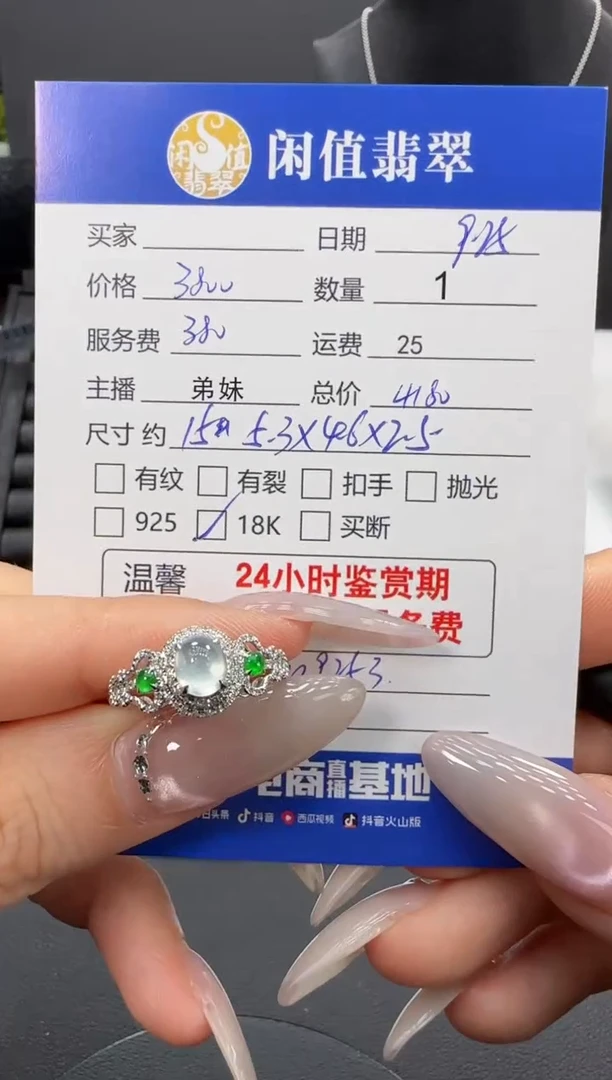 闲值翡翠
闲值翡翠
买家 日期 9.25
价格 3800 数量 1
服务费 380 运费 25
主播 弟妹 总价 4180
尺寸 约 15# 5.3X4.6X2.5
有纹 有裂 扣手 抛光
925 18K 买断
温馨 24小时鉴赏期
费
电商直播基地
日头条 抖音 西瓜视频 抖音火山版